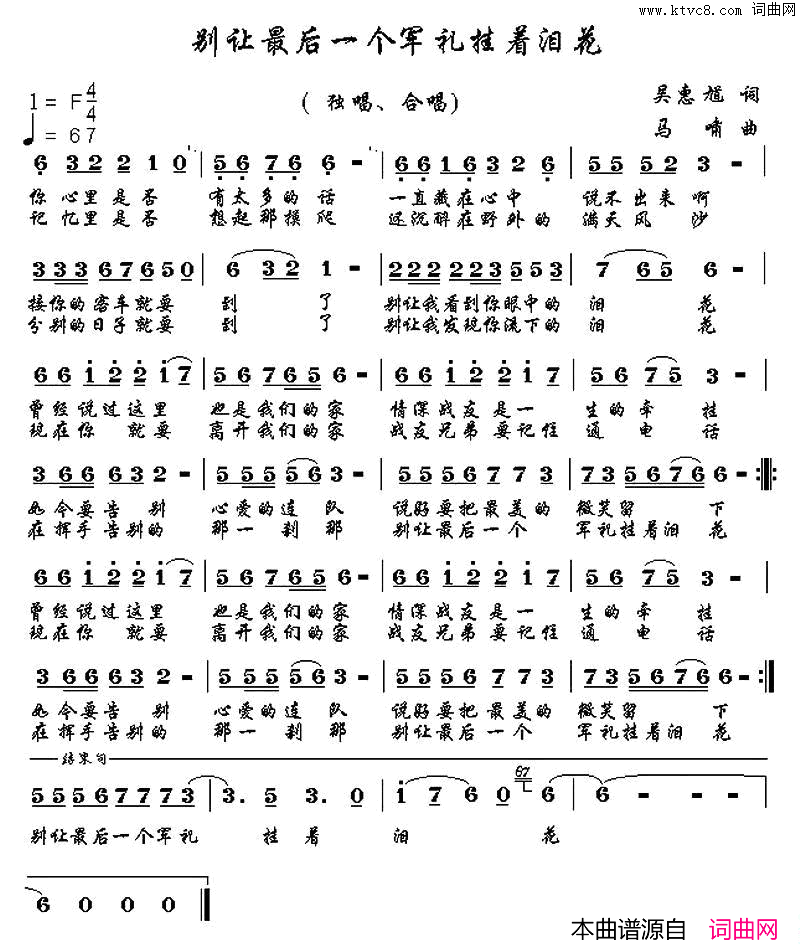 www.ktvc8.com 词曲网
别让最后一个军礼挂着泪花
1=F 4/4
♩=67
(独唱、合唱)
吴惠馗 词
马 啸 曲
6 3 2 2 1 0 | 5 6 7 6 6 - | 6 6 1 6 3 2 2 - | 5 5 5 2 3 - |
你心里是否 有太多的话 一直藏在心中 说不出来啊
记忆里是否 想起那摸爬 还沉醉在野外的 满天风沙
3 3 3 6 7 6 5 0 | 6 3 2 1 - | 2 2 2 2 2 3 5 5 3 | 7 6 5 6 - |
接你的客车就要 到 了 别让我看到你眼中的 泪 花
分别的日子就要 到 了 别让我发现你流下的 泪 花
6 6 1 2 2 1 7 | 5 6 7 6 6 5 6 - | 6 6 1 2 2 1 7 | 5 6 7 5 3 - |
曾经说过这里 也是我们的家 情深战友是一 生的牵挂
现在你 就要 离开我们的家 战友兄弟要记住 通 电 话
3 6 6 6 3 2 - | 5 5 5 5 5 6 3 - | 5 5 5 6 7 7 3 | 7 3 5 6 7 6 6 - :||:
如今要告 别 心爱的连 队 说好要把最美的 微笑留 下
在挥手告别的 那一刹 那 别让最后一个 军礼挂着泪花
6 6 1 2 2 1 7 | 5 6 7 6 6 5 6 - | 6 6 1 2 2 1 7 | 5 6 7 5 3 - |
曾经说过这里 也是我们的家 情深战友是一 生的牵挂
现在你 就要 离开我们的家 战友兄弟要记住 通 电 话
3 6 6 6 3 2 - | 5 5 5 5 5 6 3 - | 5 5 5 6 7 7 3 | 7 3 5 6 7 6 6 - :||
如今要告 别 心爱的连 队 说好要把最美的 微笑留 下
在挥手告别的 那一刹 那 别让最后一个 军礼挂着泪花
结束句
5 5 5 6 7 7 7 3 | 3. 5 3. 0 | 1 7 6 0 67 6 | 6 - - - |
别让最后一个军礼 挂 着 泪 花
6 0 0 0 ||
本曲谱源自 词曲网